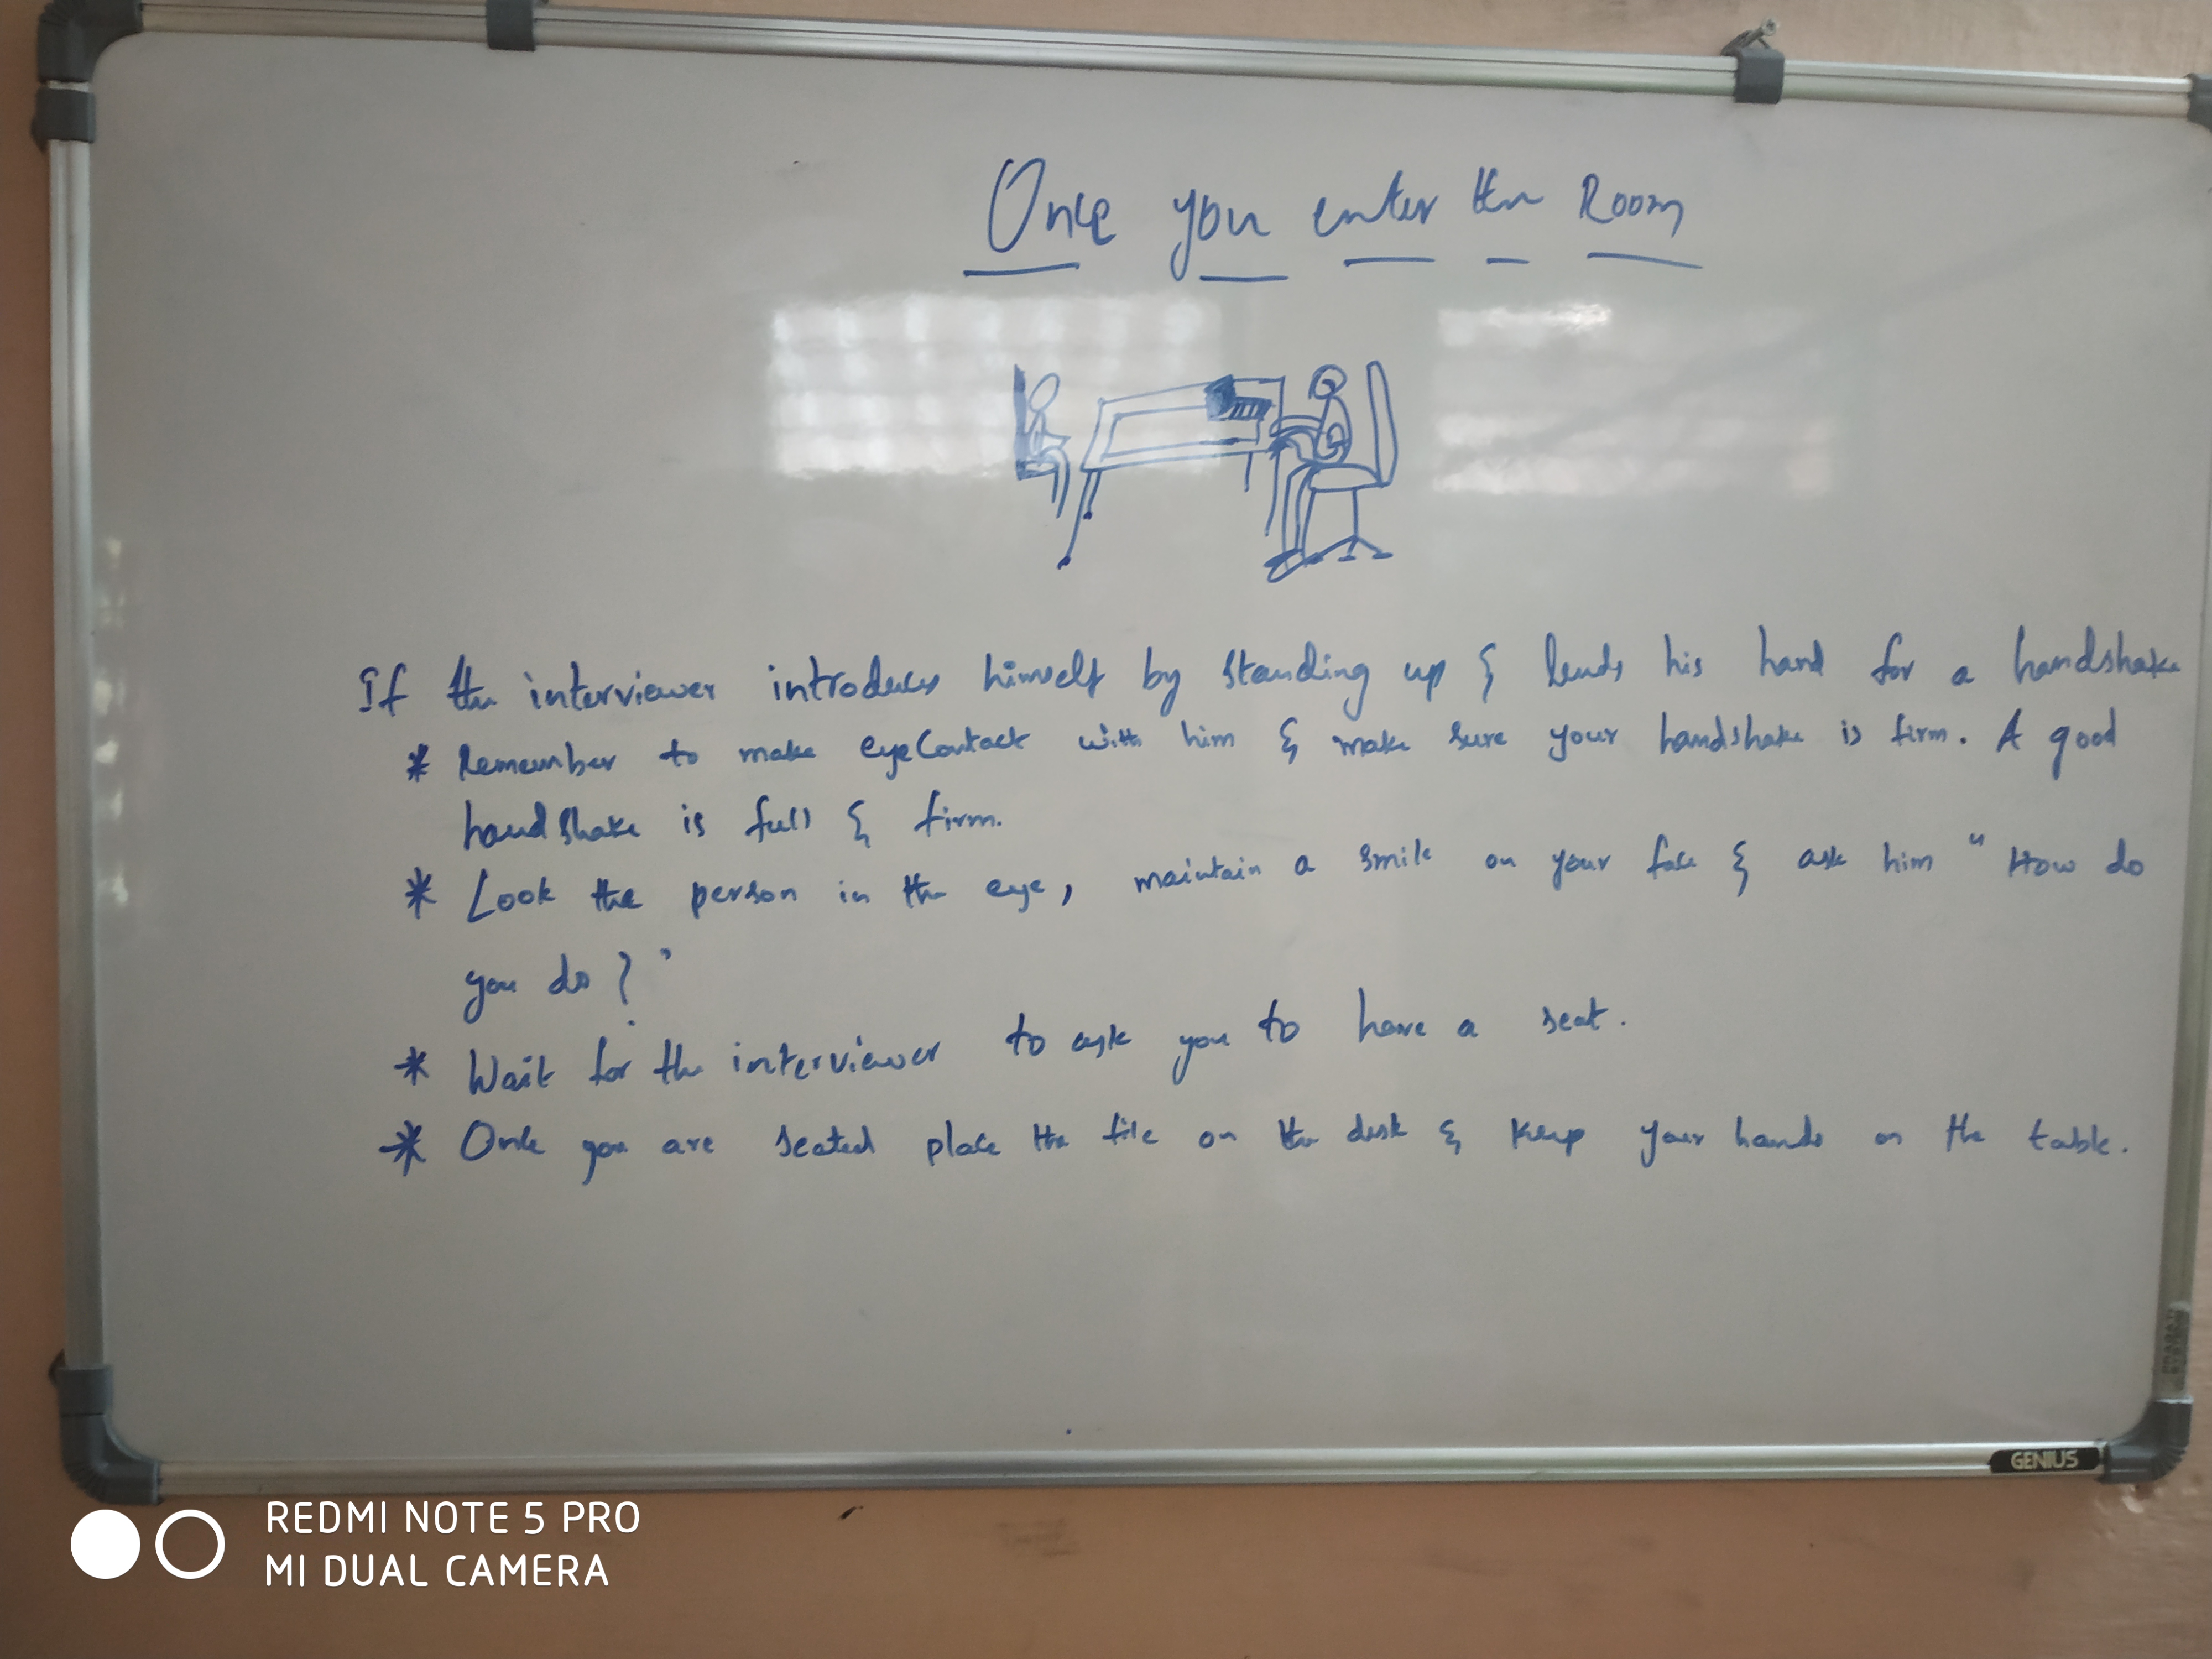 Once you enter the Room
If the interviewer introduces himself by standing up & lends his hand for a handshake
* Remember to make eyeContact with him & make sure your handshake is firm. A good
handshake is full & firm.
* Look the person in the eye, maintain a smile on your face & ask him "How do
you do?"
* Wait for the interviewer to ask you to have a seat.
* Once you are seated place the file on the desk & keep your hands on the table.
GENIUS
REDMI NOTE 5 PRO
MI DUAL CAMERA